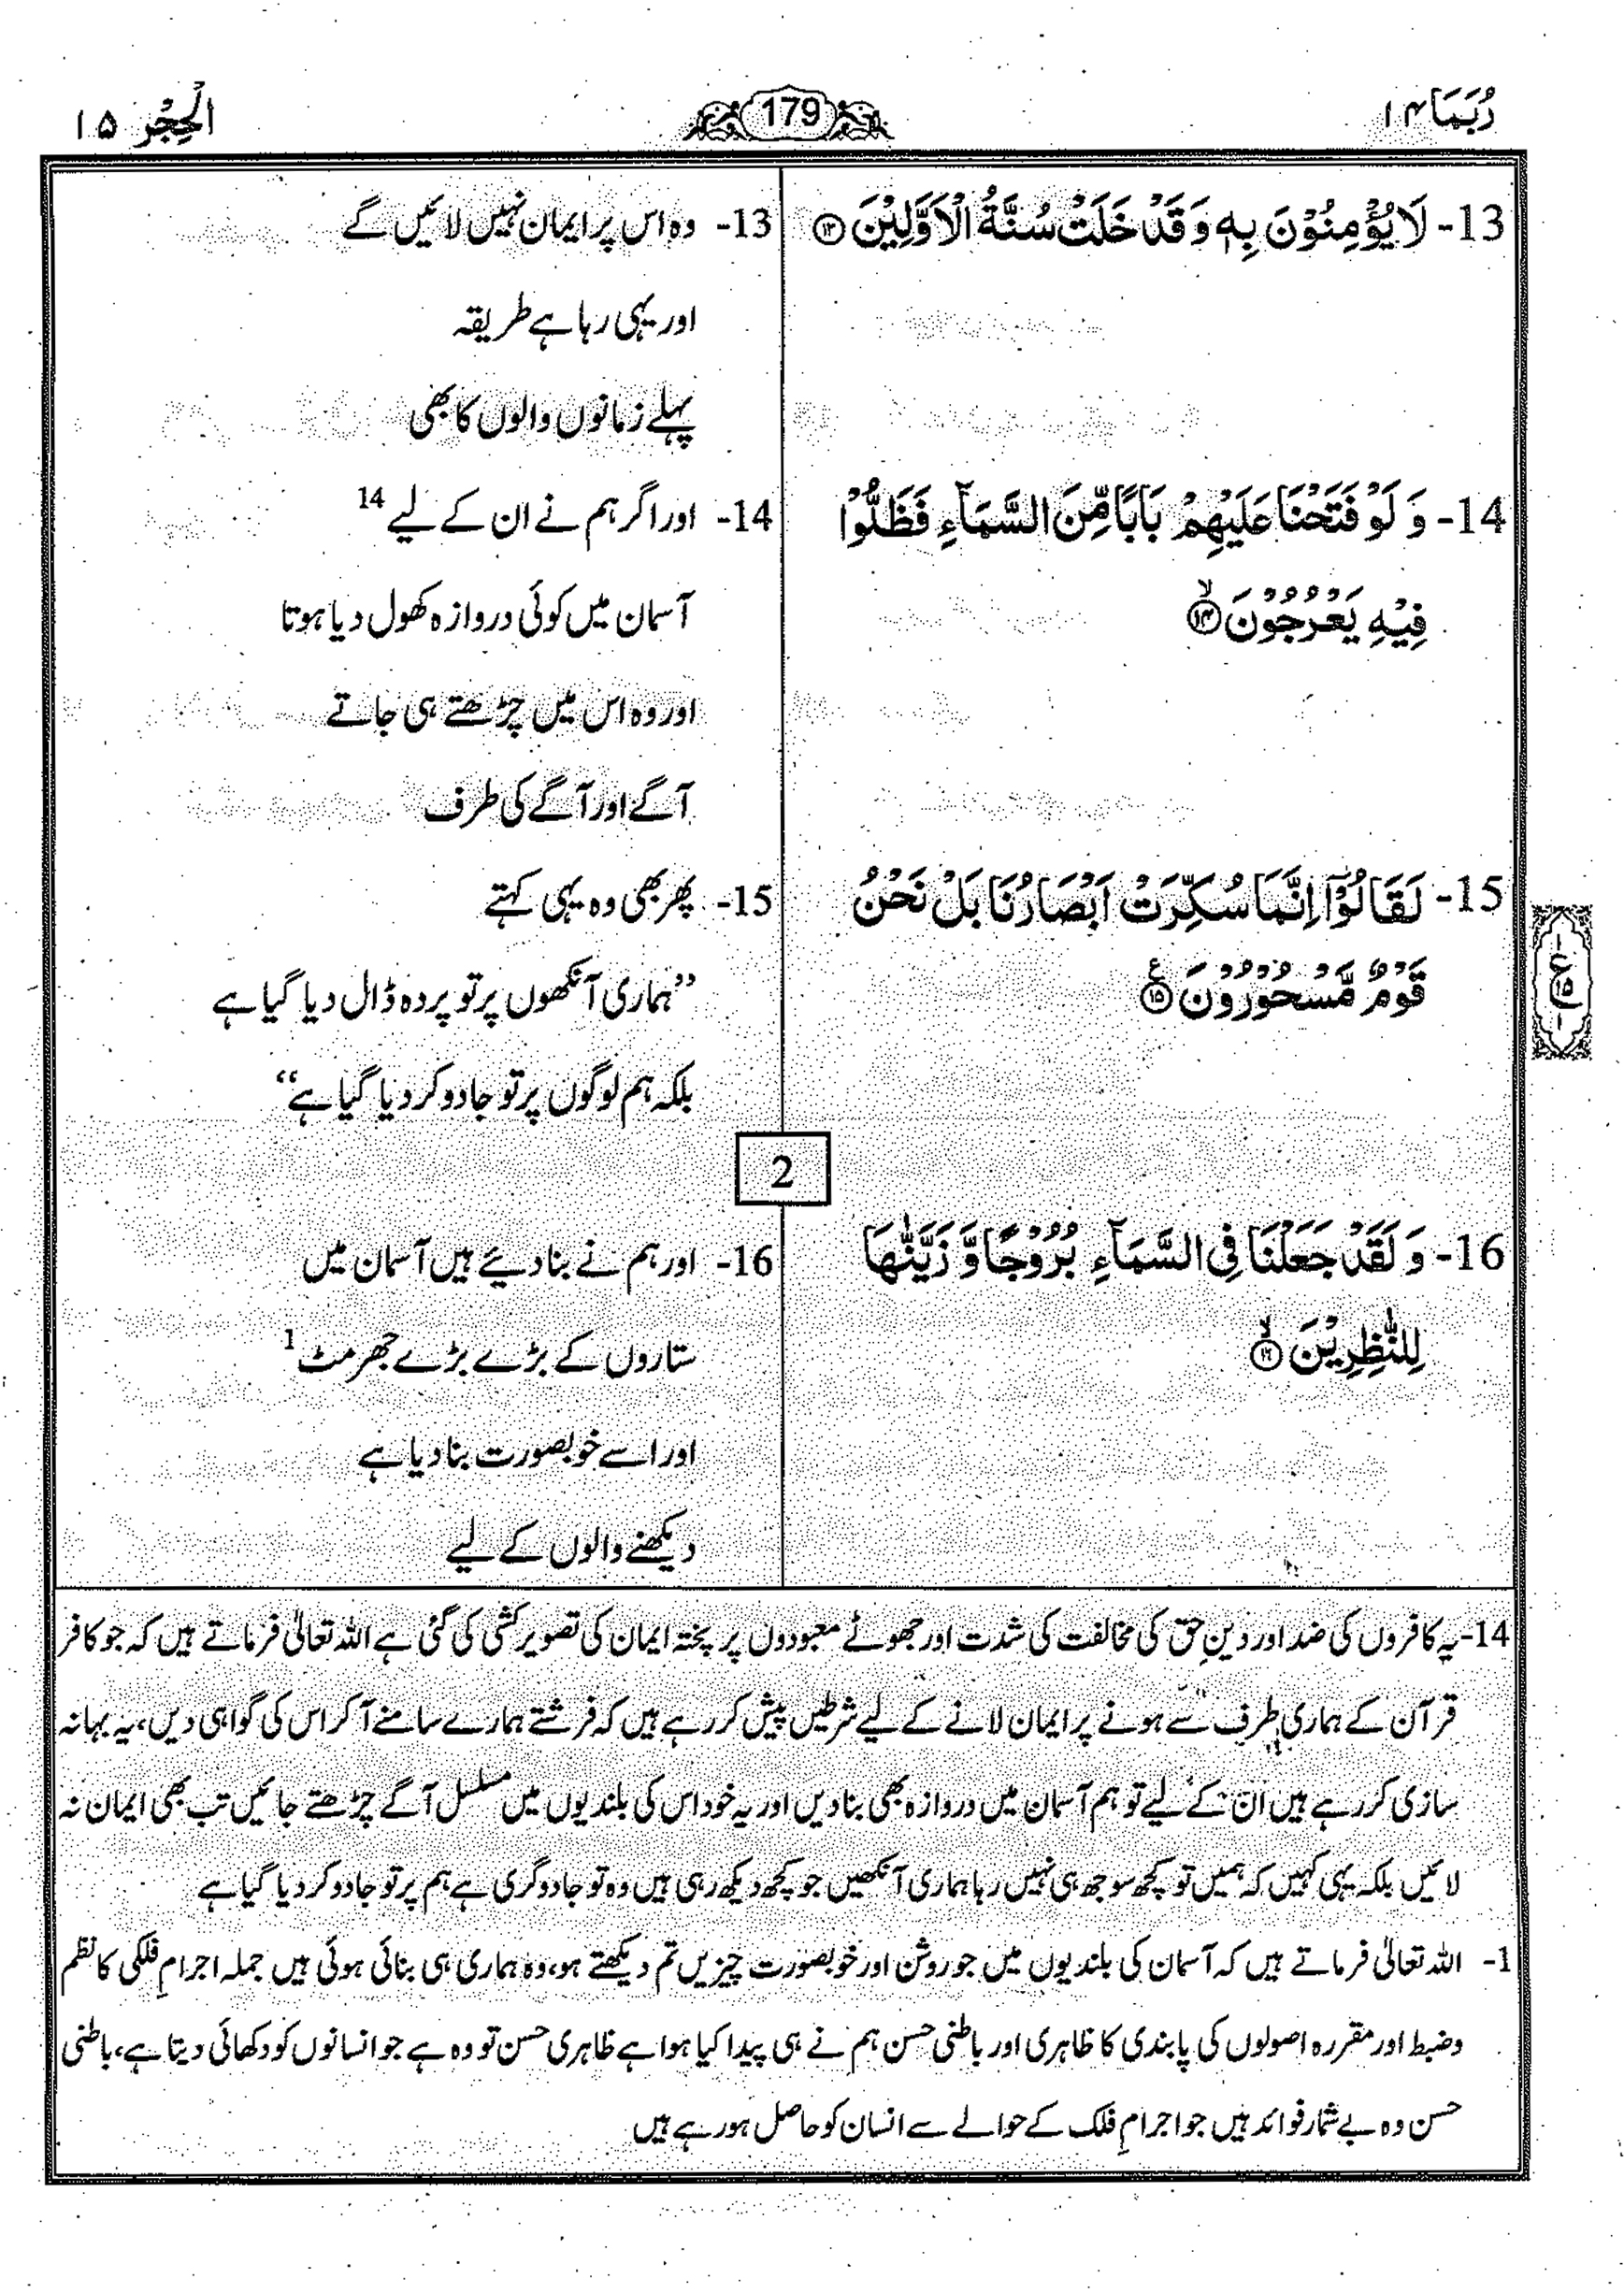 رُبَمَا ۱۴
179
الْحِجْر ۱۵
13- لَا يُؤْمِنُوْنَ بِهٖ وَ قَدْ خَلَتْ سُنَّةُ الْاَوَّلِيْنَ ۝۱۳
14- وَ لَوْ فَتَحْنَا عَلَيْهِمْ بَابًا مِّنَ السَّمَآءِ فَظَلُّوْا
فِيْهِ يَعْرُجُوْنَ ۝۱۴ۙ
15- لَقَالُوْۤا اِنَّمَا سُكِّرَتْ اَبْصَارُنَا بَلْ نَحْنُ
قَوْمٌ مَّسْحُوْرُوْنَ ۝۱۵ ع
16- وَ لَقَدْ جَعَلْنَا فِى السَّمَآءِ بُرُوْجًا وَّ زَيَّنّٰهَا
لِلنّٰظِرِيْنَ ۝۱۶ۙ
13- وہ اس پر ایمان نہیں لائیں گے
اور یہی رہا ہے طریقہ
پہلے زمانوں والوں کا بھی
14- اور اگر ہم نے ان کے لیے 14
آسمان میں کوئی دروازہ کھول دیا ہوتا
اور وہ اس میں چڑھتے ہی جاتے
آگے اور آگے کی طرف
15- پھر بھی وہ یہی کہتے
”ہماری آنکھوں پر تو پردہ ڈال دیا گیا ہے
بلکہ ہم لوگوں پر تو جادو کر دیا گیا ہے“
2
16- اور ہم نے بنا دیئے ہیں آسمان میں
ستاروں کے بڑے بڑے جھرمٹ 1
اور اسے خوبصورت بنا دیا ہے
دیکھنے والوں کے لیے
ع
۱۵
۱
14- یہ کافروں کی ضد اور دینِ حق کی مخالفت کی شدت اور جھوٹے معبودوں پر پختہ ایمان کی تصویر کشی کی گئی ہے اللہ تعالیٰ فرماتے ہیں کہ جو کافر
قرآن کے ہماری طرف سے ہونے پر ایمان لانے کے لیے شرطیں پیش کر رہے ہیں کہ فرشتے ہمارے سامنے آ کر اس کی گواہی دیں، یہ بہانہ
سازی کر رہے ہیں ان کے لیے تو ہم آسمان میں دروازہ بھی بنا دیں اور یہ خود اس کی بلندیوں میں مسلسل آگے چڑھتے جائیں تب بھی ایمان نہ
لائیں بلکہ یہی کہیں کہ ہمیں تو کچھ سوجھ ہی نہیں رہا ہماری آنکھیں جو کچھ دیکھ رہی ہیں وہ تو جادوگری ہے ہم پر تو جادو کر دیا گیا ہے
1- اللہ تعالیٰ فرماتے ہیں کہ آسمان کی بلندیوں میں جو روشن اور خوبصورت چیزیں تم دیکھتے ہو، وہ ہماری ہی بنائی ہوئی ہیں جملہ اجرامِ فلکی کا نظم
و ضبط اور مقررہ اصولوں کی پابندی کا ظاہری اور باطنی حسن ہم نے ہی پیدا کیا ہوا ہے ظاہری حسن تو وہ ہے جو انسانوں کو دکھائی دیتا ہے، باطنی
حسن وہ بے شمار فوائد ہیں جو اجرامِ فلک کے حوالے سے انسان کو حاصل ہو رہے ہیں